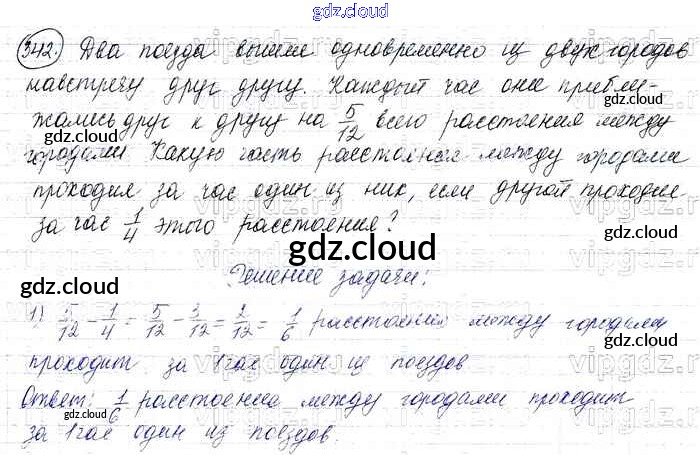 gdz.cloud
342. Два поезда вышли одновременно из двух городов
навстречу друг другу. Каждый час они прибли-
жались друг к другу на 5/12 всего расстояния между
gdz.cloud gdz.cloud
городами. Какую часть расстояния между городами
проходил за час один из них, если другой проходил
за час 1/4 этого расстояния?
gdz.cloud
gdz.cloud gdz.cloud
Решение задачи:
1) 5/12 - 1/4 = 5/12 - 3/12 = 2/12 = 1/6 расстояния между городами
проходит за 1 час один из поездов
Ответ: 1/6 расстояния между городами проходит
gdz.cloud gdz.cloud
за 1 час один из поездов.
gdz.cloud